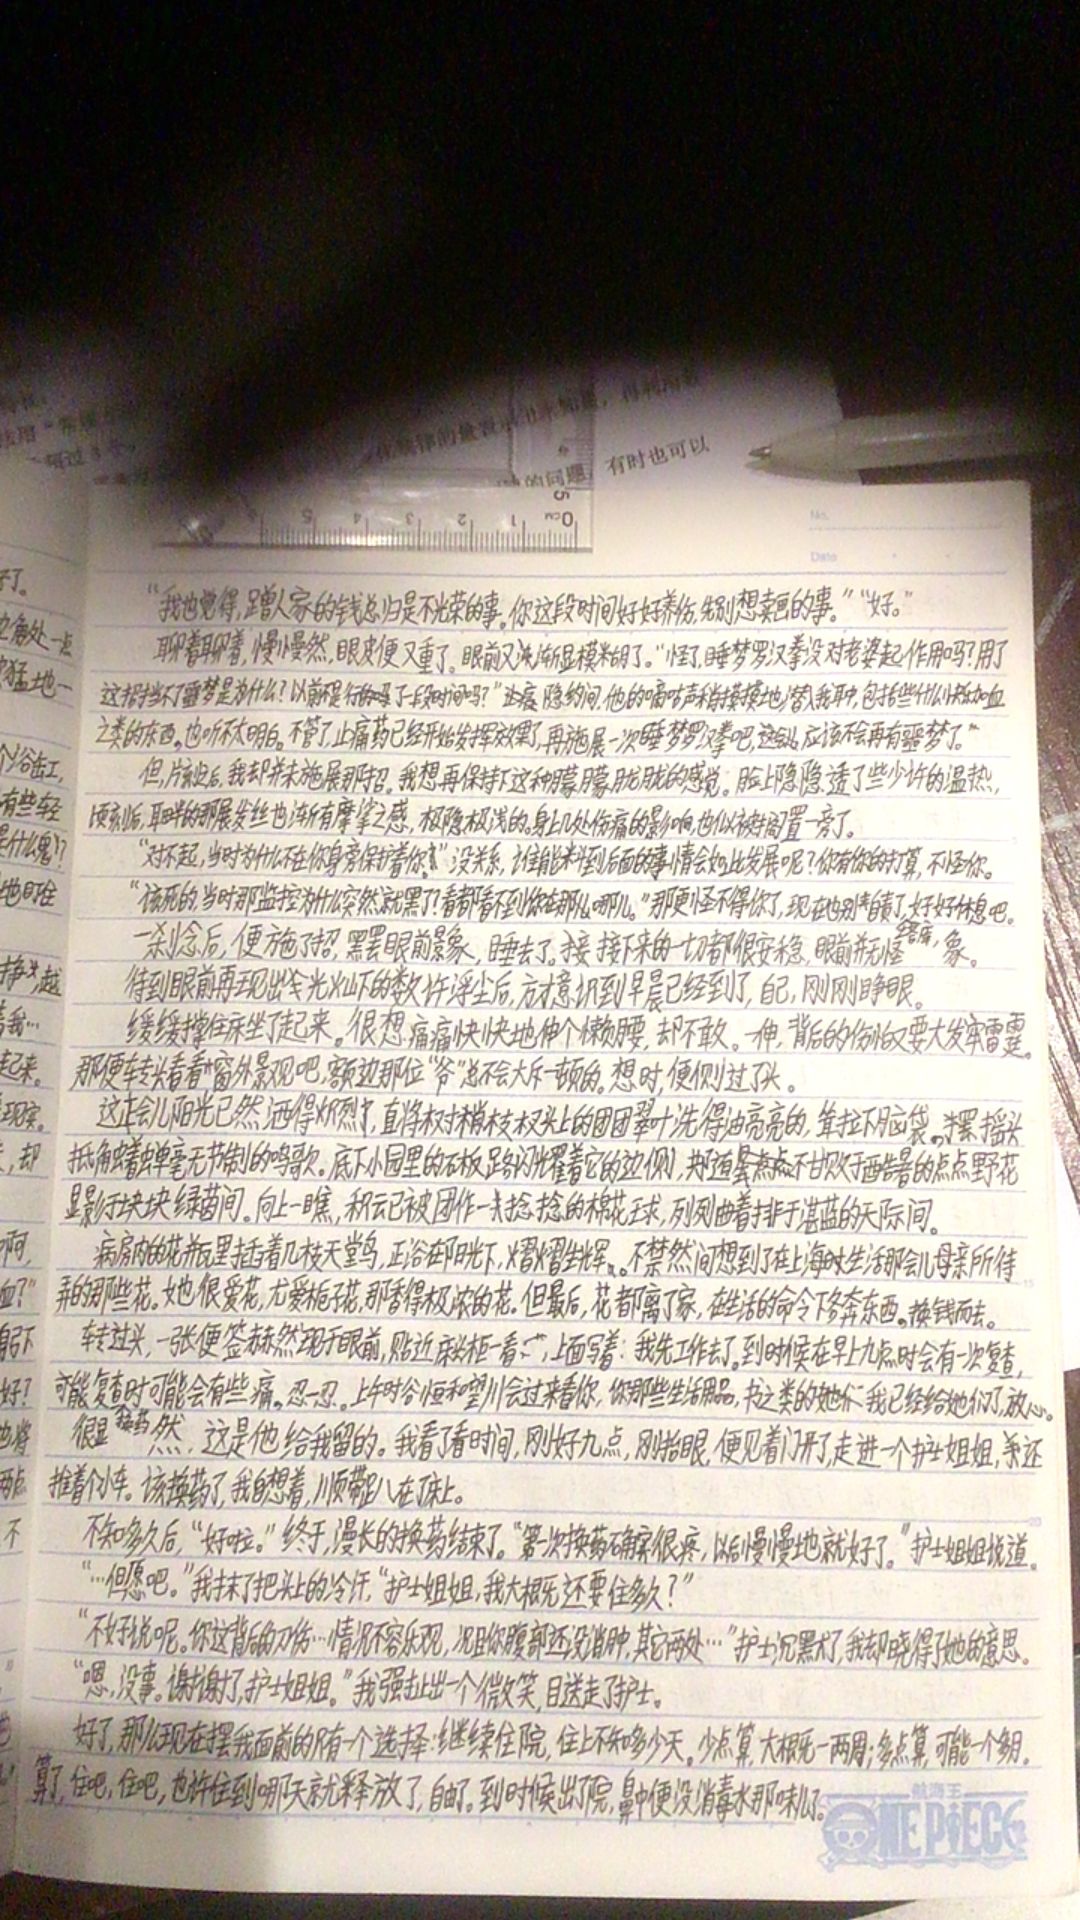 有时也可以
的问题
5 4 3 2 1 0 CM
5
No.
Date
“我也觉得,蹭人家的钱总归是不光荣的事。你这段时间好好养伤,先别想卖画的事。”“好。”
聊着聊着,慢慢然,眼皮便又重了。眼前又渐渐显模糊了。“怪了,睡梦罗汉拳没对老婆起作用吗?用了
这招挡不了噩梦是为什么?以前 了一段时间吗?” 隐约间,他的嘀咕声稍 地潜入我耳中,包括些什么 加血
之类的东西。也听不大明白。不管了,止痛药已经开始发挥效果了,再施展一次睡梦罗汉拳吧,这会儿应该不会再有噩梦了。”
但,片刻之后,我却并未施展那招。我想再保持下这种朦朦胧胧的感觉:脸上隐隐透了些少许的温热,
顷刻后,耳畔的那展发丝也渐有摩挲之感,极隐极浅的。身上几处伤痛的影响,也似被搁置一旁了。
“对不起,当时为什么不在你身旁保护着你?”“没关系,谁能料到后面的事情会如此发展呢?你有你的打算,不怪你。
“该死的,当时那监控为什么突然就黑了?看都看不到你在那儿哪儿。”“那更怪不得你了,现在也别自责了,好好休息吧。
一刹念后,便施了招,黑罢眼前景象,睡去了。接接下来的一切都很安稳,眼前并无怪 象。
待到眼前再现出冷光灯下的数许浮尘后,方才意识到早晨已经到了,自己,刚刚睁眼。
缓缓撑住床坐了起来。很想痛痛快快地伸个懒腰,却不敢。一伸,背后的伤怕又要大发雷霆。
那便转头看看窗外景观吧,额边那位“爷”总不会大斥一顿的。想时,便侧过了头。
这正会儿阳光已然洒得炽烈了,直将树梢枝杈头上的团团翠叶洗得油亮亮的,耸拉下脑袋。摆摇头
抵角蟠蝉毫无节制的鸣歌。底下小园里的石板路闪光翟着它的边侧, 不甘败于酷暑的点点野花
显影于块块绿茵间。向上一瞧,积云已被团作一 捻捻的棉花球,列列曲着排于湛蓝的天际间。
病房内的花瓶里插着几枝天堂鸟,正浴在阳光下,熠熠生辉。不禁然间想到了在上海时生活那会儿母亲所侍
弄的那些花。她很爱花,尤爱栀子花,那香得极浓的花。但最后,花都离了家,在生活的命令下各奔东西。换钱而去。
转过头,一张便签赫然现于眼前,贴近床头柜一看,上面写着:我先工作去了。到时候在早上九点时会有一次复查,
可能复查时可能会有些痛。忍一忍。上午时谷恒和望川会过来看你,你那些生活用品,书之类的她们我已经给她们了,放心。
换药
很显然,这是他给我留的。我看了看时间,刚好九点,刚抬眼,便见着门开了,走进一个护士姐姐,来还
推着个小车。该换药了,我自想着,顺带趴在了床上。
不知多久后,“好啦。”终于,漫长的换药结束了。“第一次换药确实很疼,以后慢慢地就好了。”护士姐姐说道。
“…但愿吧。”我抹了把头上的冷汗,“护士姐姐,我大概还要住多久?”
“不好说呢。你这背后的刀伤…情况不容乐观,况且你腹部还没消肿,其它两处…”护士沉默了,我却晓得了她的意思。
“嗯,没事。谢谢了,护士姐姐。”我强扯出一个微笑,目送走了护士。
好了,那么现在摆我面前的只有一个选择:继续住院,住上不知多少天。少点算,大概一两周;多点算,可能一个多月。
算了,住吧,住吧,也许住到哪天就释放了,自由了。到时候出了院,鼻中便没消毒水那味儿了。
航海王
ONE PIECE